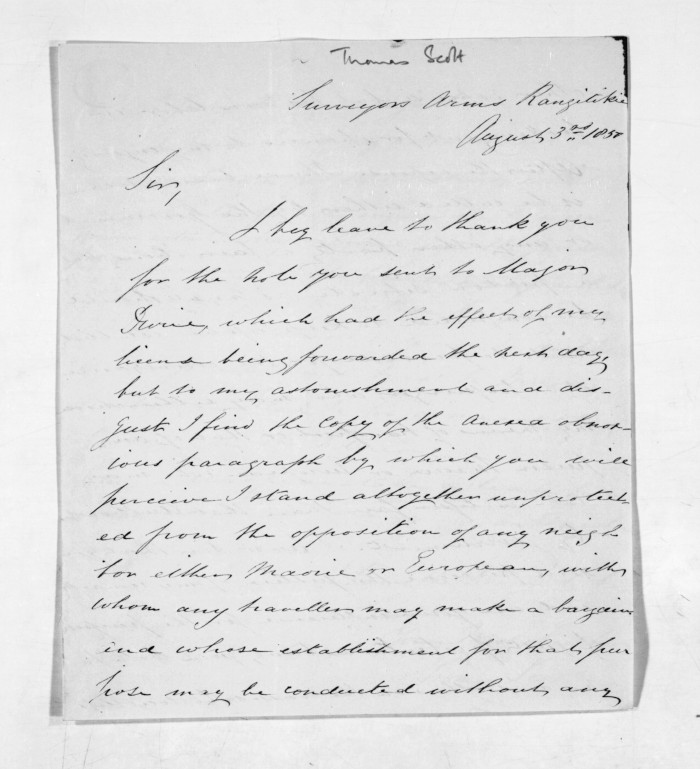 Thomas Scott
Surveyors Arms Rangitikie
August 3rd 1850
Sir,
I beg leave to thank you
for the note you sent to Major
which had the effect of my
licens being forwarded the next day,
but to my astonishment and dis-
gust I find the copy of the anexed obnox-
ious paragraph by which you will
perceive I stand altogether unprotect-
ed from the opposition of any neigh
bor either Maorie or European, with
whom any traveller may make a bargain
and whose establishment for that pur
pose may be conducted without any